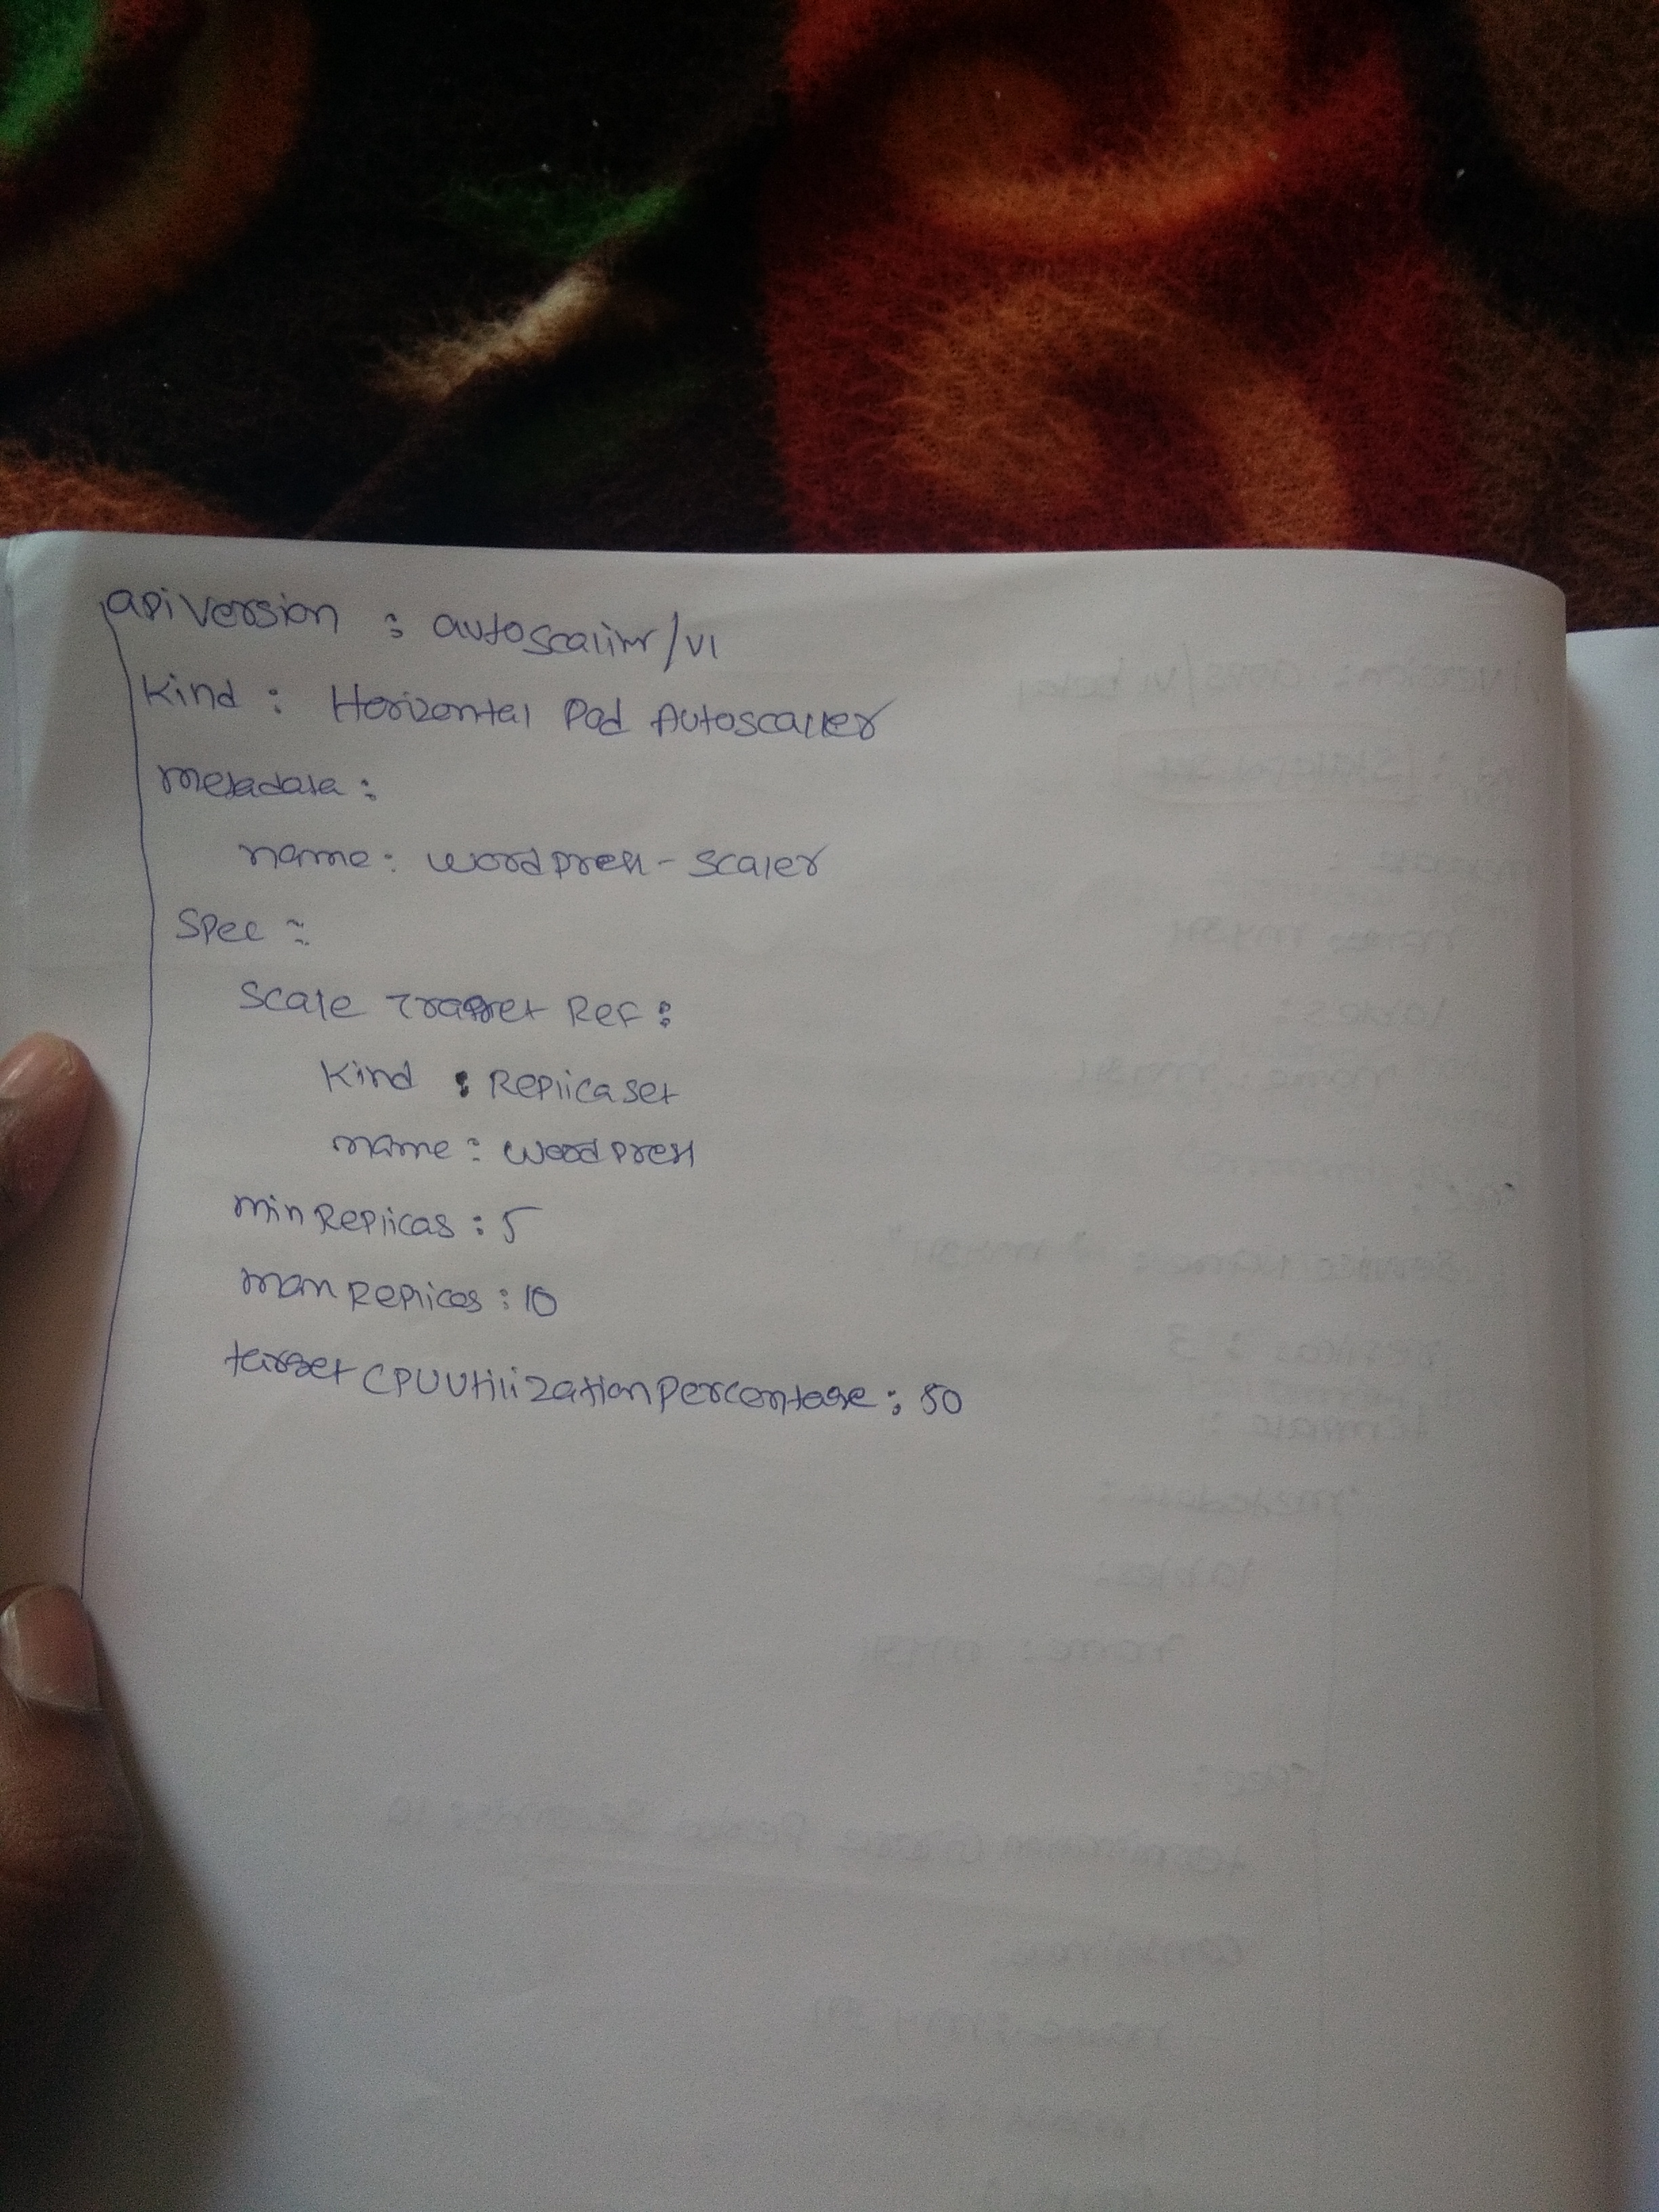 apiVersion : autoscalinr/v1
Kind : Horizontal Pod Autoscaller
metadata :
name: wordpress-scaler
Spec :
Scale Tragret Ref :
Kind : Replicaset
name : wordpress
min Replicas : 5
man Replices : 10
target CPUUtilizationpercentage : 50